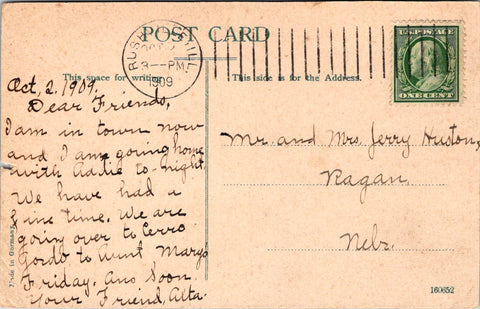 POST CARD
RUSHVILLE ILL.
OCT 2
3-PM
1909
U.S. POSTAGE
ONE CENT
This space for writing
This side is for the Address.
Oct, 2, 1909.
Dear Friends,
I am in town now
and I am going home
with Addie to-night,
We have had a
fine time. We are
going over to Cerro
Gordo to Aunt Marys
Friday. Ans Soon
Your Friend, Alta.
Mr. and Mrs. Jerry Huston,
Ragan,
Nebr.
Made in Germany
160652